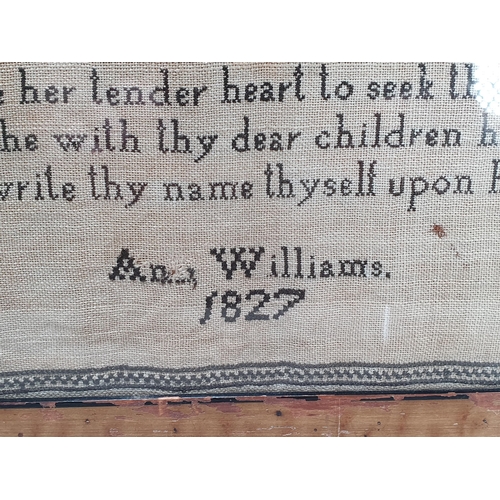 her tender heart to seek
he with thy dear children
write thy name thyself upon
Ann Williams.
1827